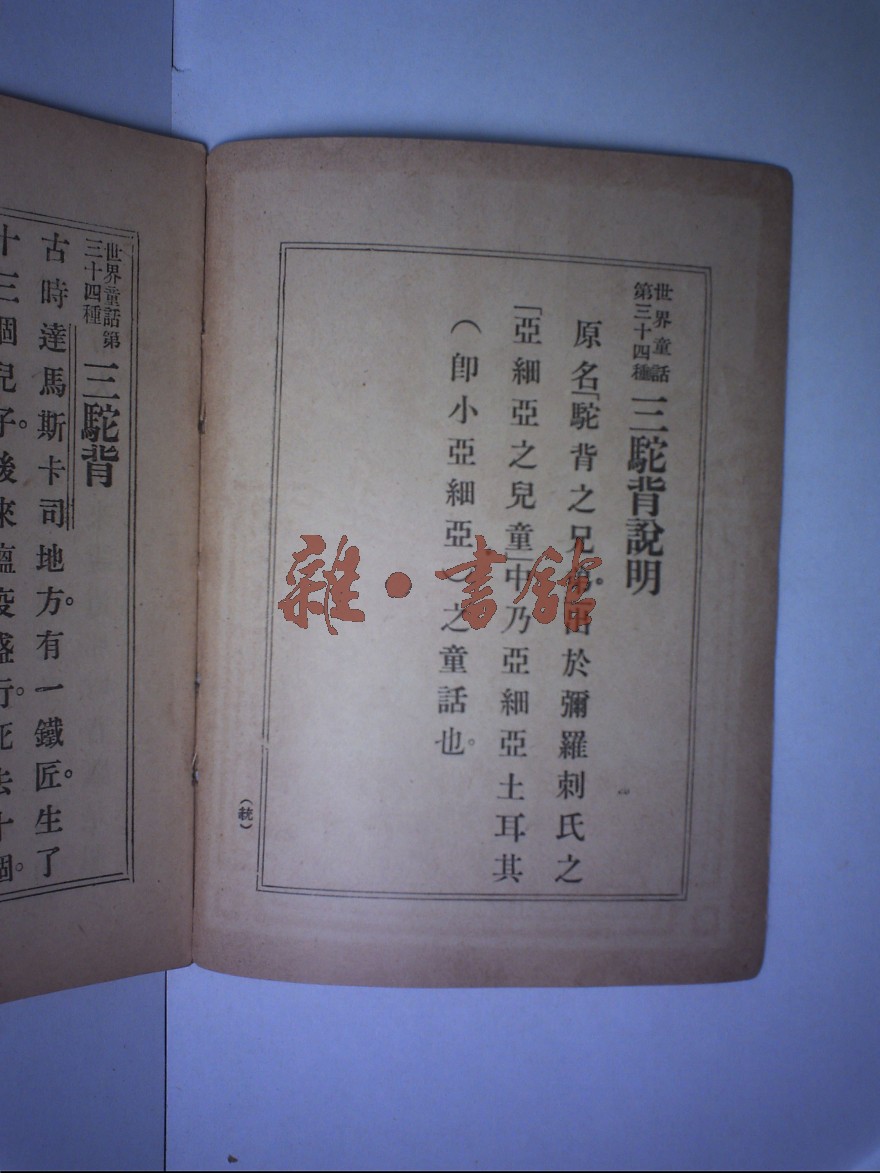 世界童話
第三十四種
三駝背說明
原名「駝背之兄弟」出於彌羅刺氏之
「亞細亞之兒童」中乃亞細亞土耳其
(卽小亞細亞)之童話也。
(統)
世界童話第
三十四種
三駝背
古時達馬斯卡司地方。有一鐵匠。生了
十三個兒子。後來瘟疫盛行。死去十個。
雜·書舘